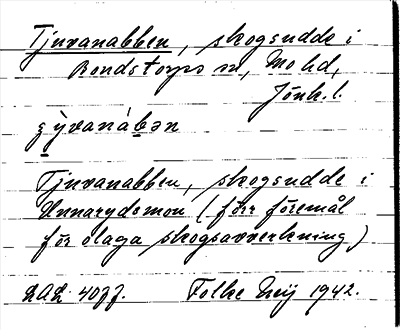 Tjuvanabben, skogsudde i
Bondstorps sn, Mo hd,
Jönk. l.
ʒỳvanábən
Tjuvanabben, skogsudde i
Unnarydsmon (förr föremål
för olaga skogsavverkning)
Folke Neij 1942.